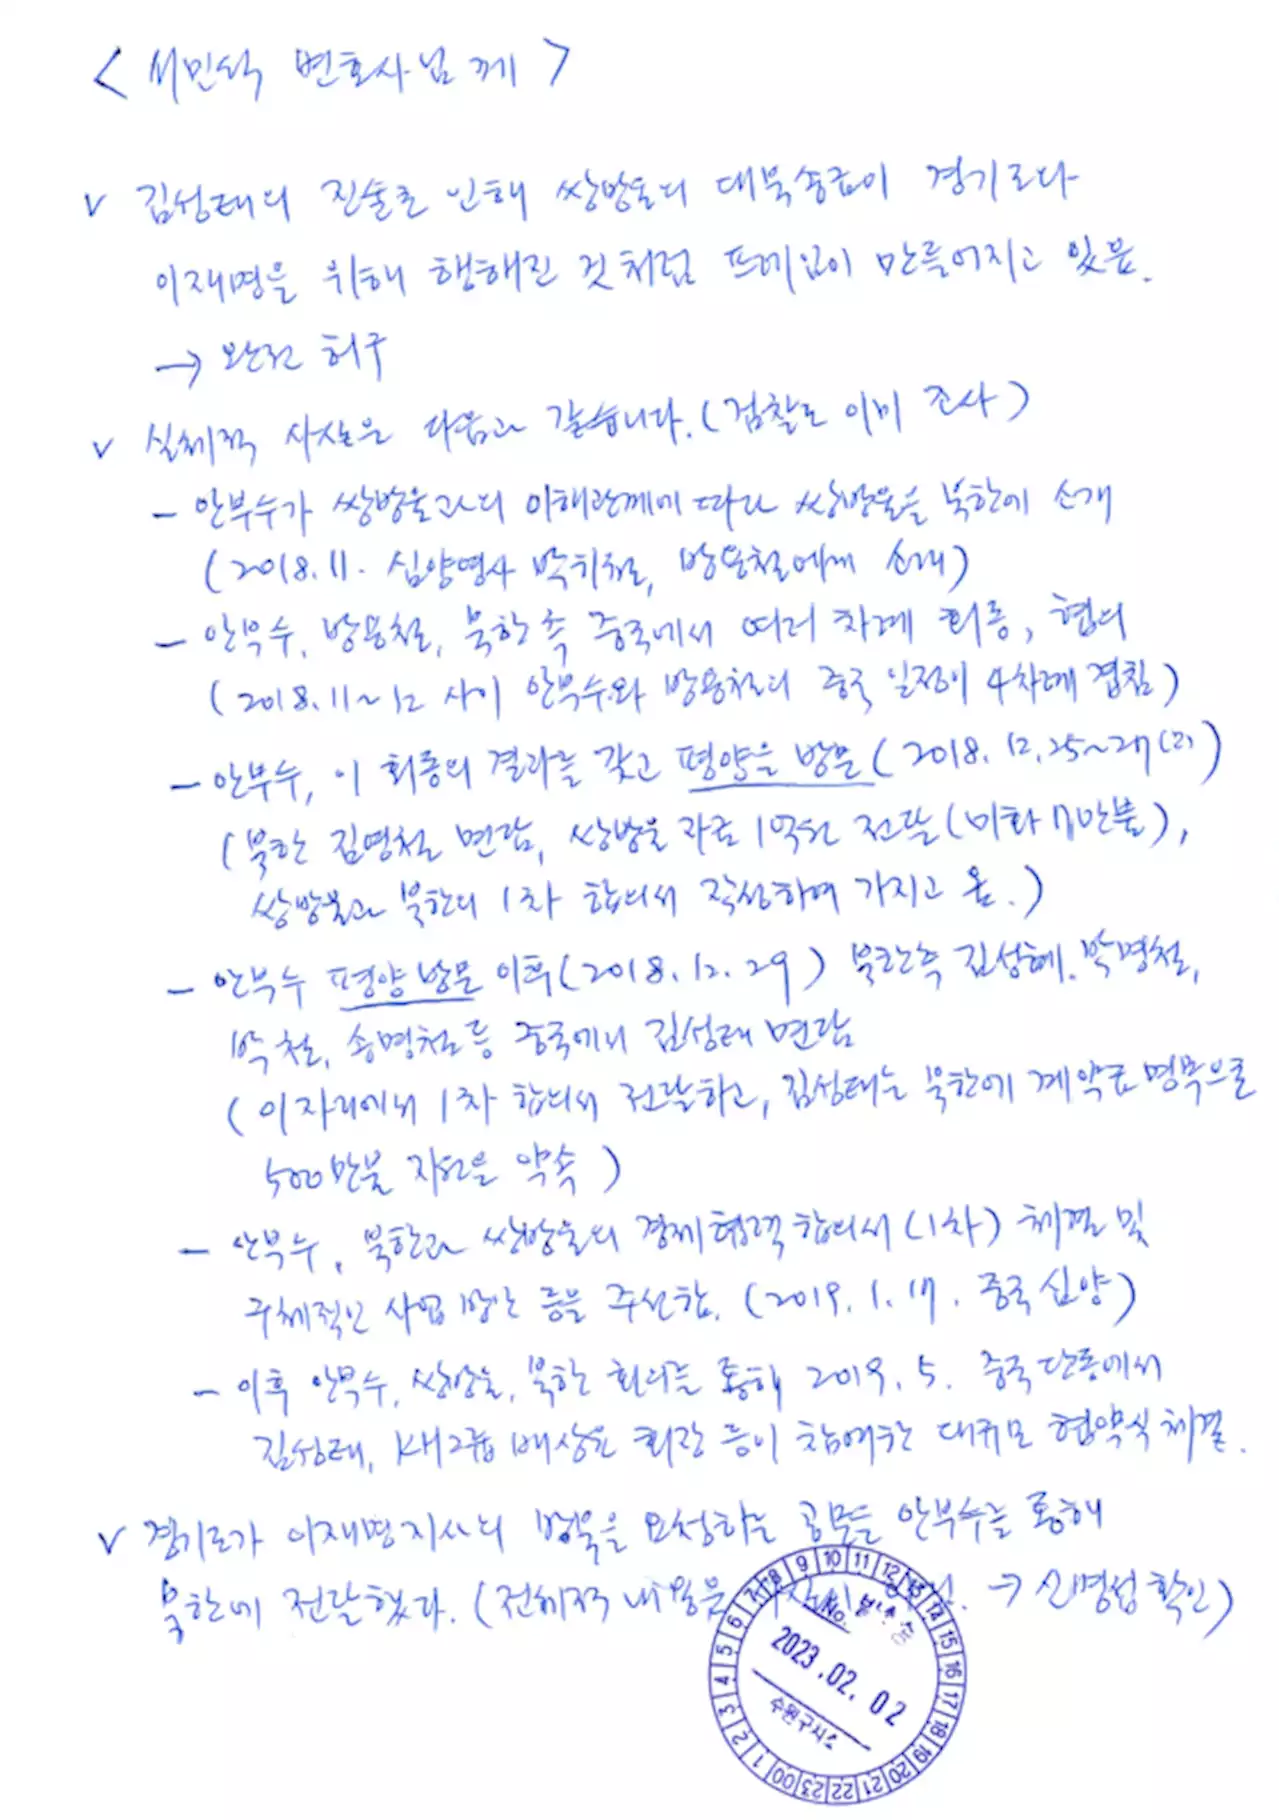 < 서민석 변호사님께 >
v 김성태의 진술로 인해 쌍방울의 대북송금이 경기도다
이재명을 위해 행해진 것처럼 프레임이 만들어지고 있음.
→ 완전 허구
v 실체적 사실은 다음과 같습니다. (검찰도 이미 조사)
- 안부수가 쌍방울과의 이해관계에 따라 쌍방울을 북한에 소개
(2018.11. 심양영사 박위철, 방용철에게 소개)
- 안부수, 방용철, 북한 측 중국에서 여러 차례 회동, 협의
(2018.11~12 사이 안부수와 방용철의 중국 일정이 4차례 겹침)
- 안부수, 이 회동의 결과를 갖고 평양을 방문 (2018.12.25~27(?))
(북한 김영철 면담, 쌍방울 자금 1억원 전달 (미화 7만불),
쌍방울과 북한의 1차 합의서 작성하여 가지고 옴.)
- 안부수 평양 방문 이후 (2018.12.29) 북한측 김성혜, 박명철,
박철, 송명철 등 중국에서 김성태 면담
(이 자리에서 1차 합의서 전달하고, 김성태는 북한에 계약금 명목으로
500만불 지원을 약속)
- 안부수, 북한과 쌍방울의 경제협력 합의서 (1차) 체결 및
구체적인 사업 방안 등을 주선함. (2019.1.17. 중국 심양)
- 이후 안부수, 쌍방울, 북한 회의를 통해 2019.5. 중국 단동에서
김성태, KH그룹 배상윤 회장 등이 참여한 대규모 협약식 체결.
v 경기도가 이재명 지사의 방북을 요청하는 공문을 안부수를 통해
북한에 전달했다. (전체적 내용은 → 신명섭 확인)
No.
2023.02.02
수원구치소
00 1 2 3 4 5 6 7 8 9 10 11 12 13 14 15 16 17 18 19 20 21 22 23